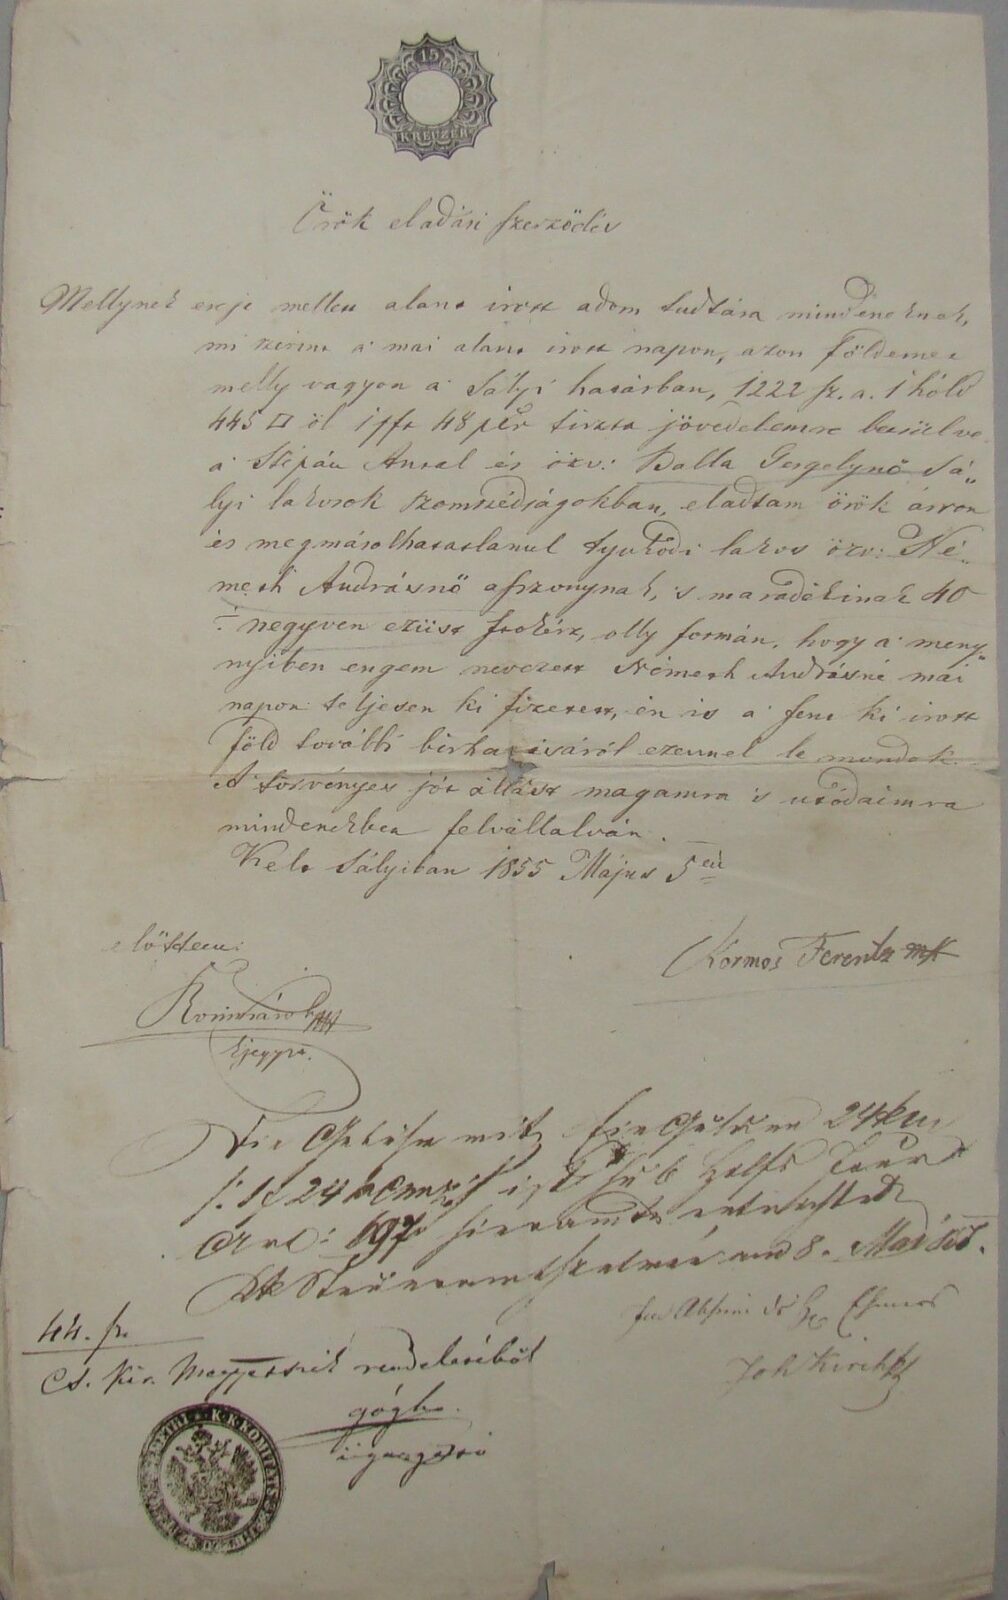 15
KREUZER
Örök eladási szerződés
Mellynek ereje mellett alant irott adom tudtára mindeneknek,
mi szerint a' mai alant irott napon, azon földemet
melly vagyon a' Sályi határban, 1222 sz. a. 1 hóld
445 □ öl 1 pft 48 pkr tiszta jövedelemre becsülve
a' Stépán Antal és özv: Balla Gergelynő Sá„
lyi lakosok szomszédságokban, eladtam örök áron
és megmásolhatatlanul tyukodi lakos özv: Né„
meth Andrásnő asszonynak, 's maradékinak 40
÷ negyven ezüst ftokért, olly formán, hogy a' meny„
nyiben engem nevezett Németh Andrásné mai
napon teljesen ki fizetett, én is a' fent ki irott
föld további birhatásáról ezennel le mondok.
A' törvényes jót állást magamra 's utódaimra
mindenekben felvállalván.
Kelt Sályiban 1855 Május 5én
előttem:
Kormos Ferentz mk
Komáromi
hjegyző.
Die Gebühr mit Ein Gulden 24 kr
/: 1f 24 kr CMnz :/ ist sub
Art: 697 hieramts entrichtet
KK Steueramt am 8. Mai 855.
44. sz.
Cs. Kir. Megyetörvszék rendeletéből
igazgató
Joh Kirch
K. K. KOMITATS